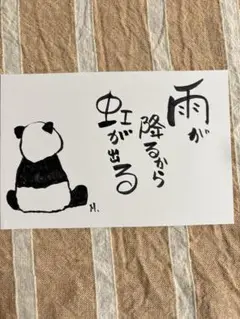 雨が
降るから
虹が出る
M.